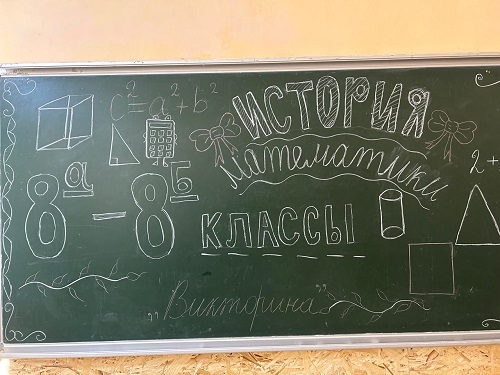 c² = a² + b²
ИСТОРИЯ
математики
2 +
8ᵃ – 8ᵇ
КЛАССЫ
„Викторина“